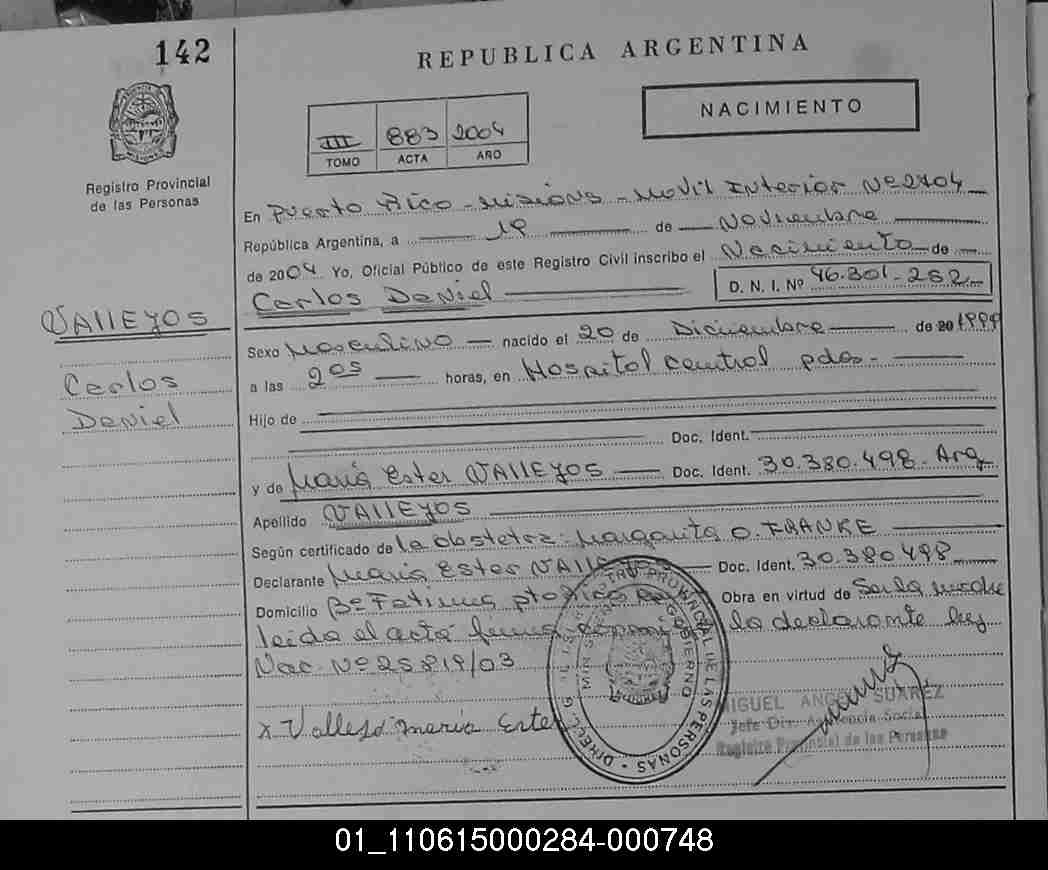 142
REPUBLICA ARGENTINA
NACIMIENTO
III 883 2004
TOMO ACTA AÑO
Registro Provincial
de las Personas
En Puerto Rico - Misiones - Movil Interior Nº 2704
República Argentina, a 19 de Noviembre
de 2004 Yo, Oficial Público de este Registro Civil inscribo el Nacimiento de
Carlos Daniel D. N. I. Nº 46.301.252
VAllEJOS
Carlos
Daniel
Sexo Masculino nacido el 20 de Diciembre de 20 1999
a las 20s horas, en Hospital Central pdas.
Hijo de
Doc. Ident.
y de María Ester VAllEJOS Doc. Ident. 30.380.498. Arg
Apellido VAllEJOS
Según certificado de la obstetra: Margarita O. FRANKE
Declarante María Ester VAllE Doc. Ident. 30.380498
Domicilio Bº Fatima pto Rico Obra en virtud de Ser la madre
leida el acta firma la declarante ley
Nac. Nº 25819/03
x Vallejo maria Ester
REGISTRO PROVINCIAL DE LAS PERSONAS
GOBIERNO
MIGUEL ANGEL SUAREZ
Jefe Div. Asistencia Social
Registro Provincial de las Personas
01_110615000284-000748